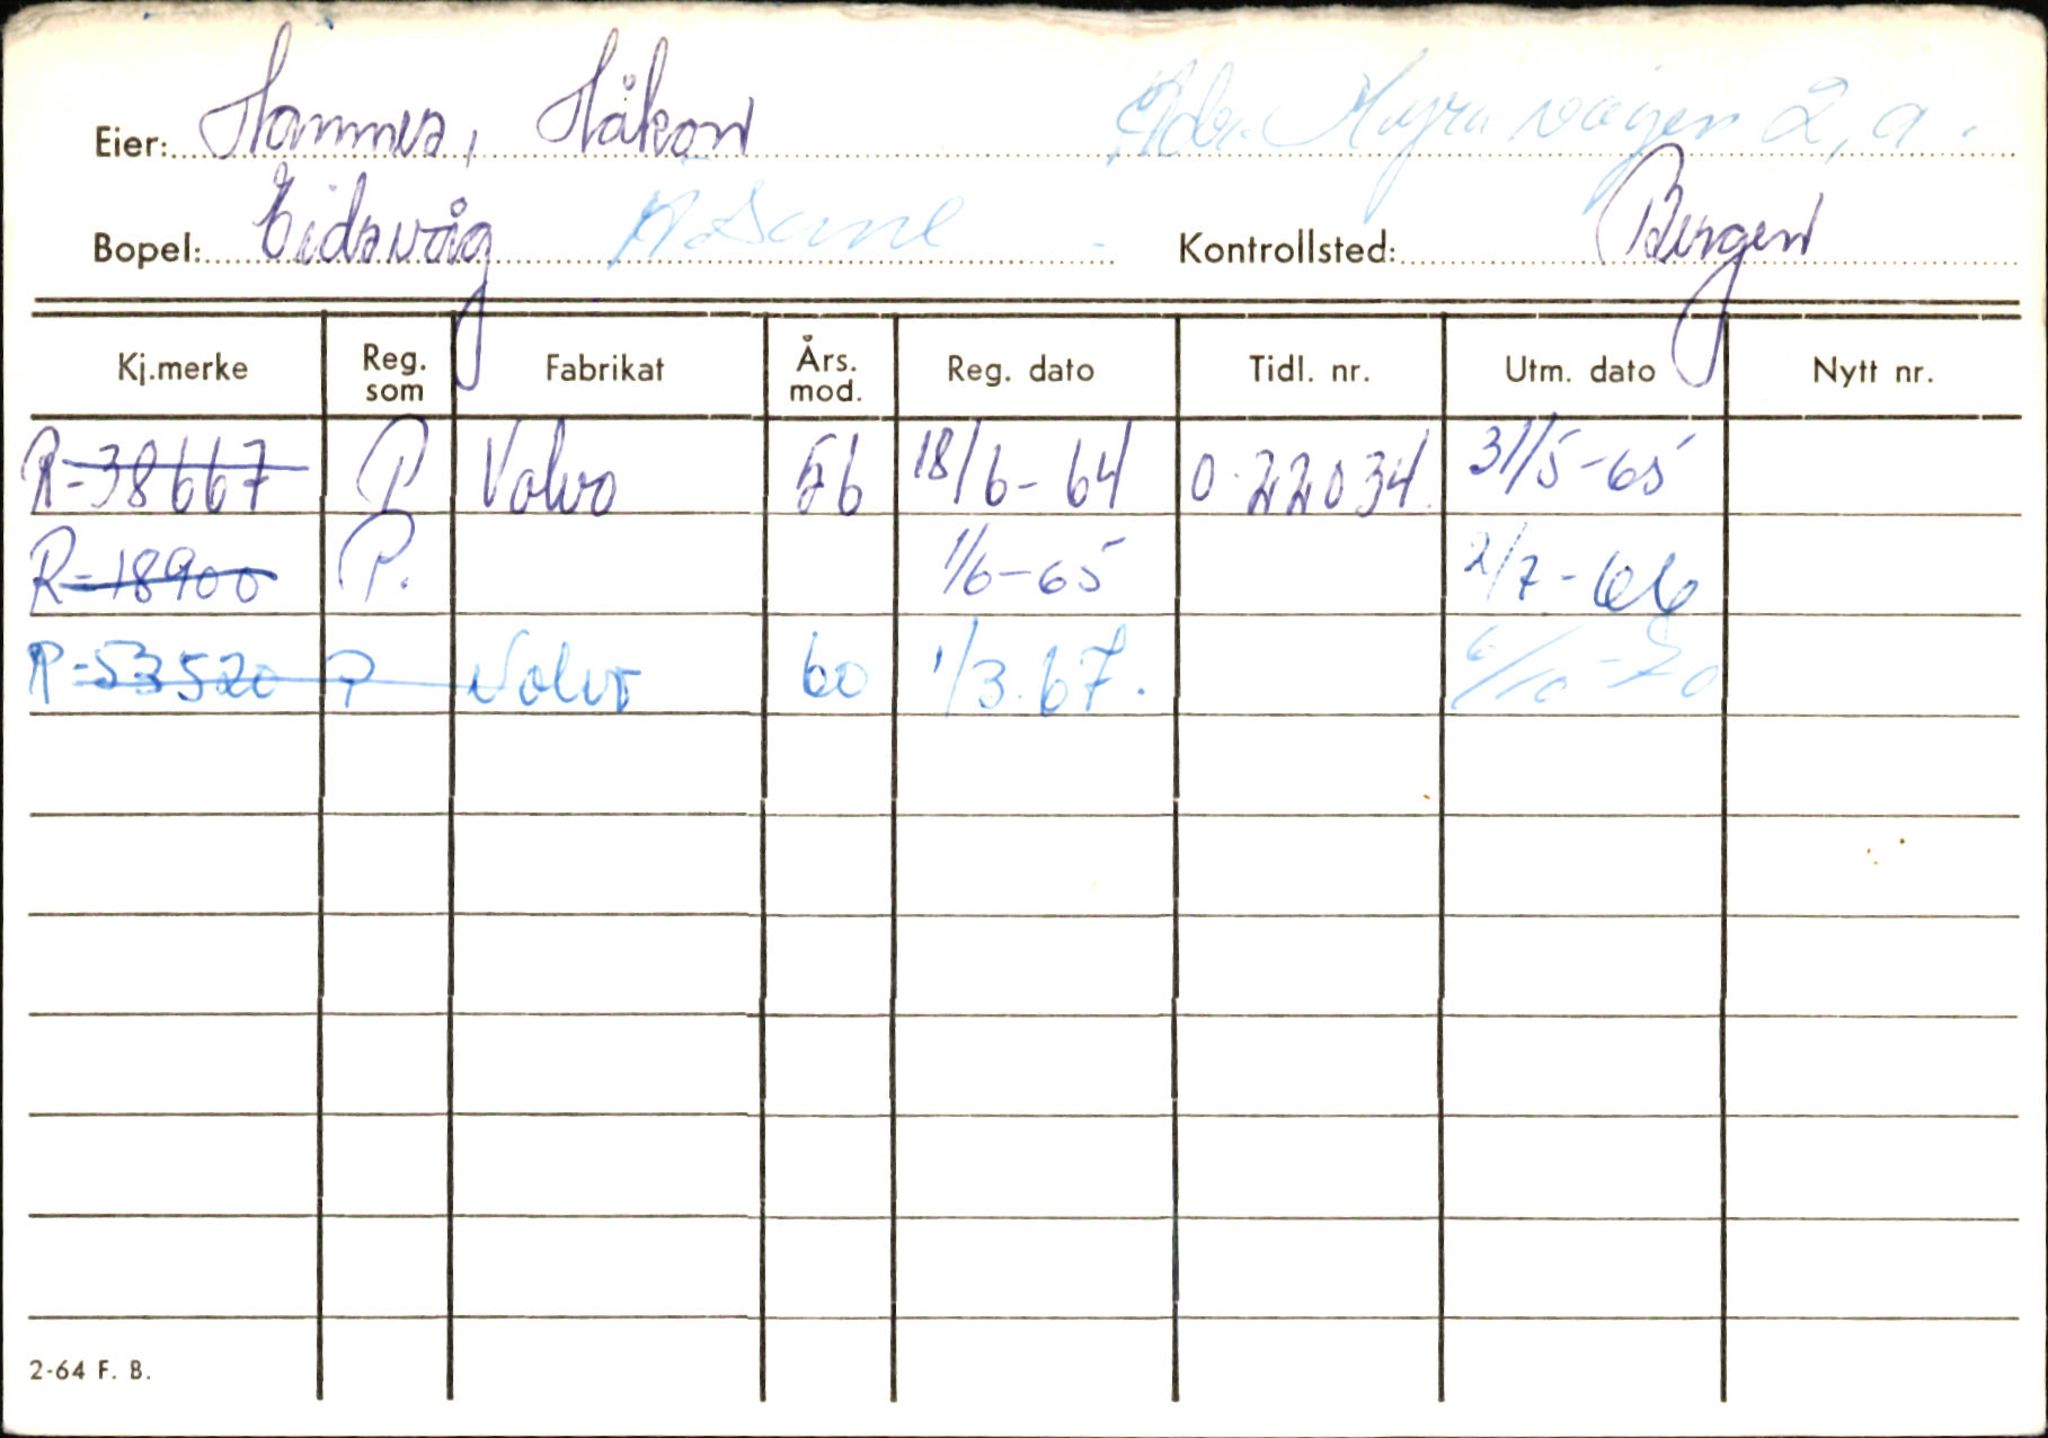 Eier: Hammer, Håkon Adr. Myravågen 2, a.
Bopel: Eidsvåg Åsane Kontrollsted: Bergen
Kj.merke Reg. som Fabrikat Års. mod. Reg. dato Tidl. nr. Utm. dato Nytt nr.
R-38667 P Volvo 56 18/6-64 O-22034. 31/5-65
R-18900 P. 1/6-65 2/7-66
R-53520 P Volvo 60 1/3.67. 6/10-70
2-64 F. B.